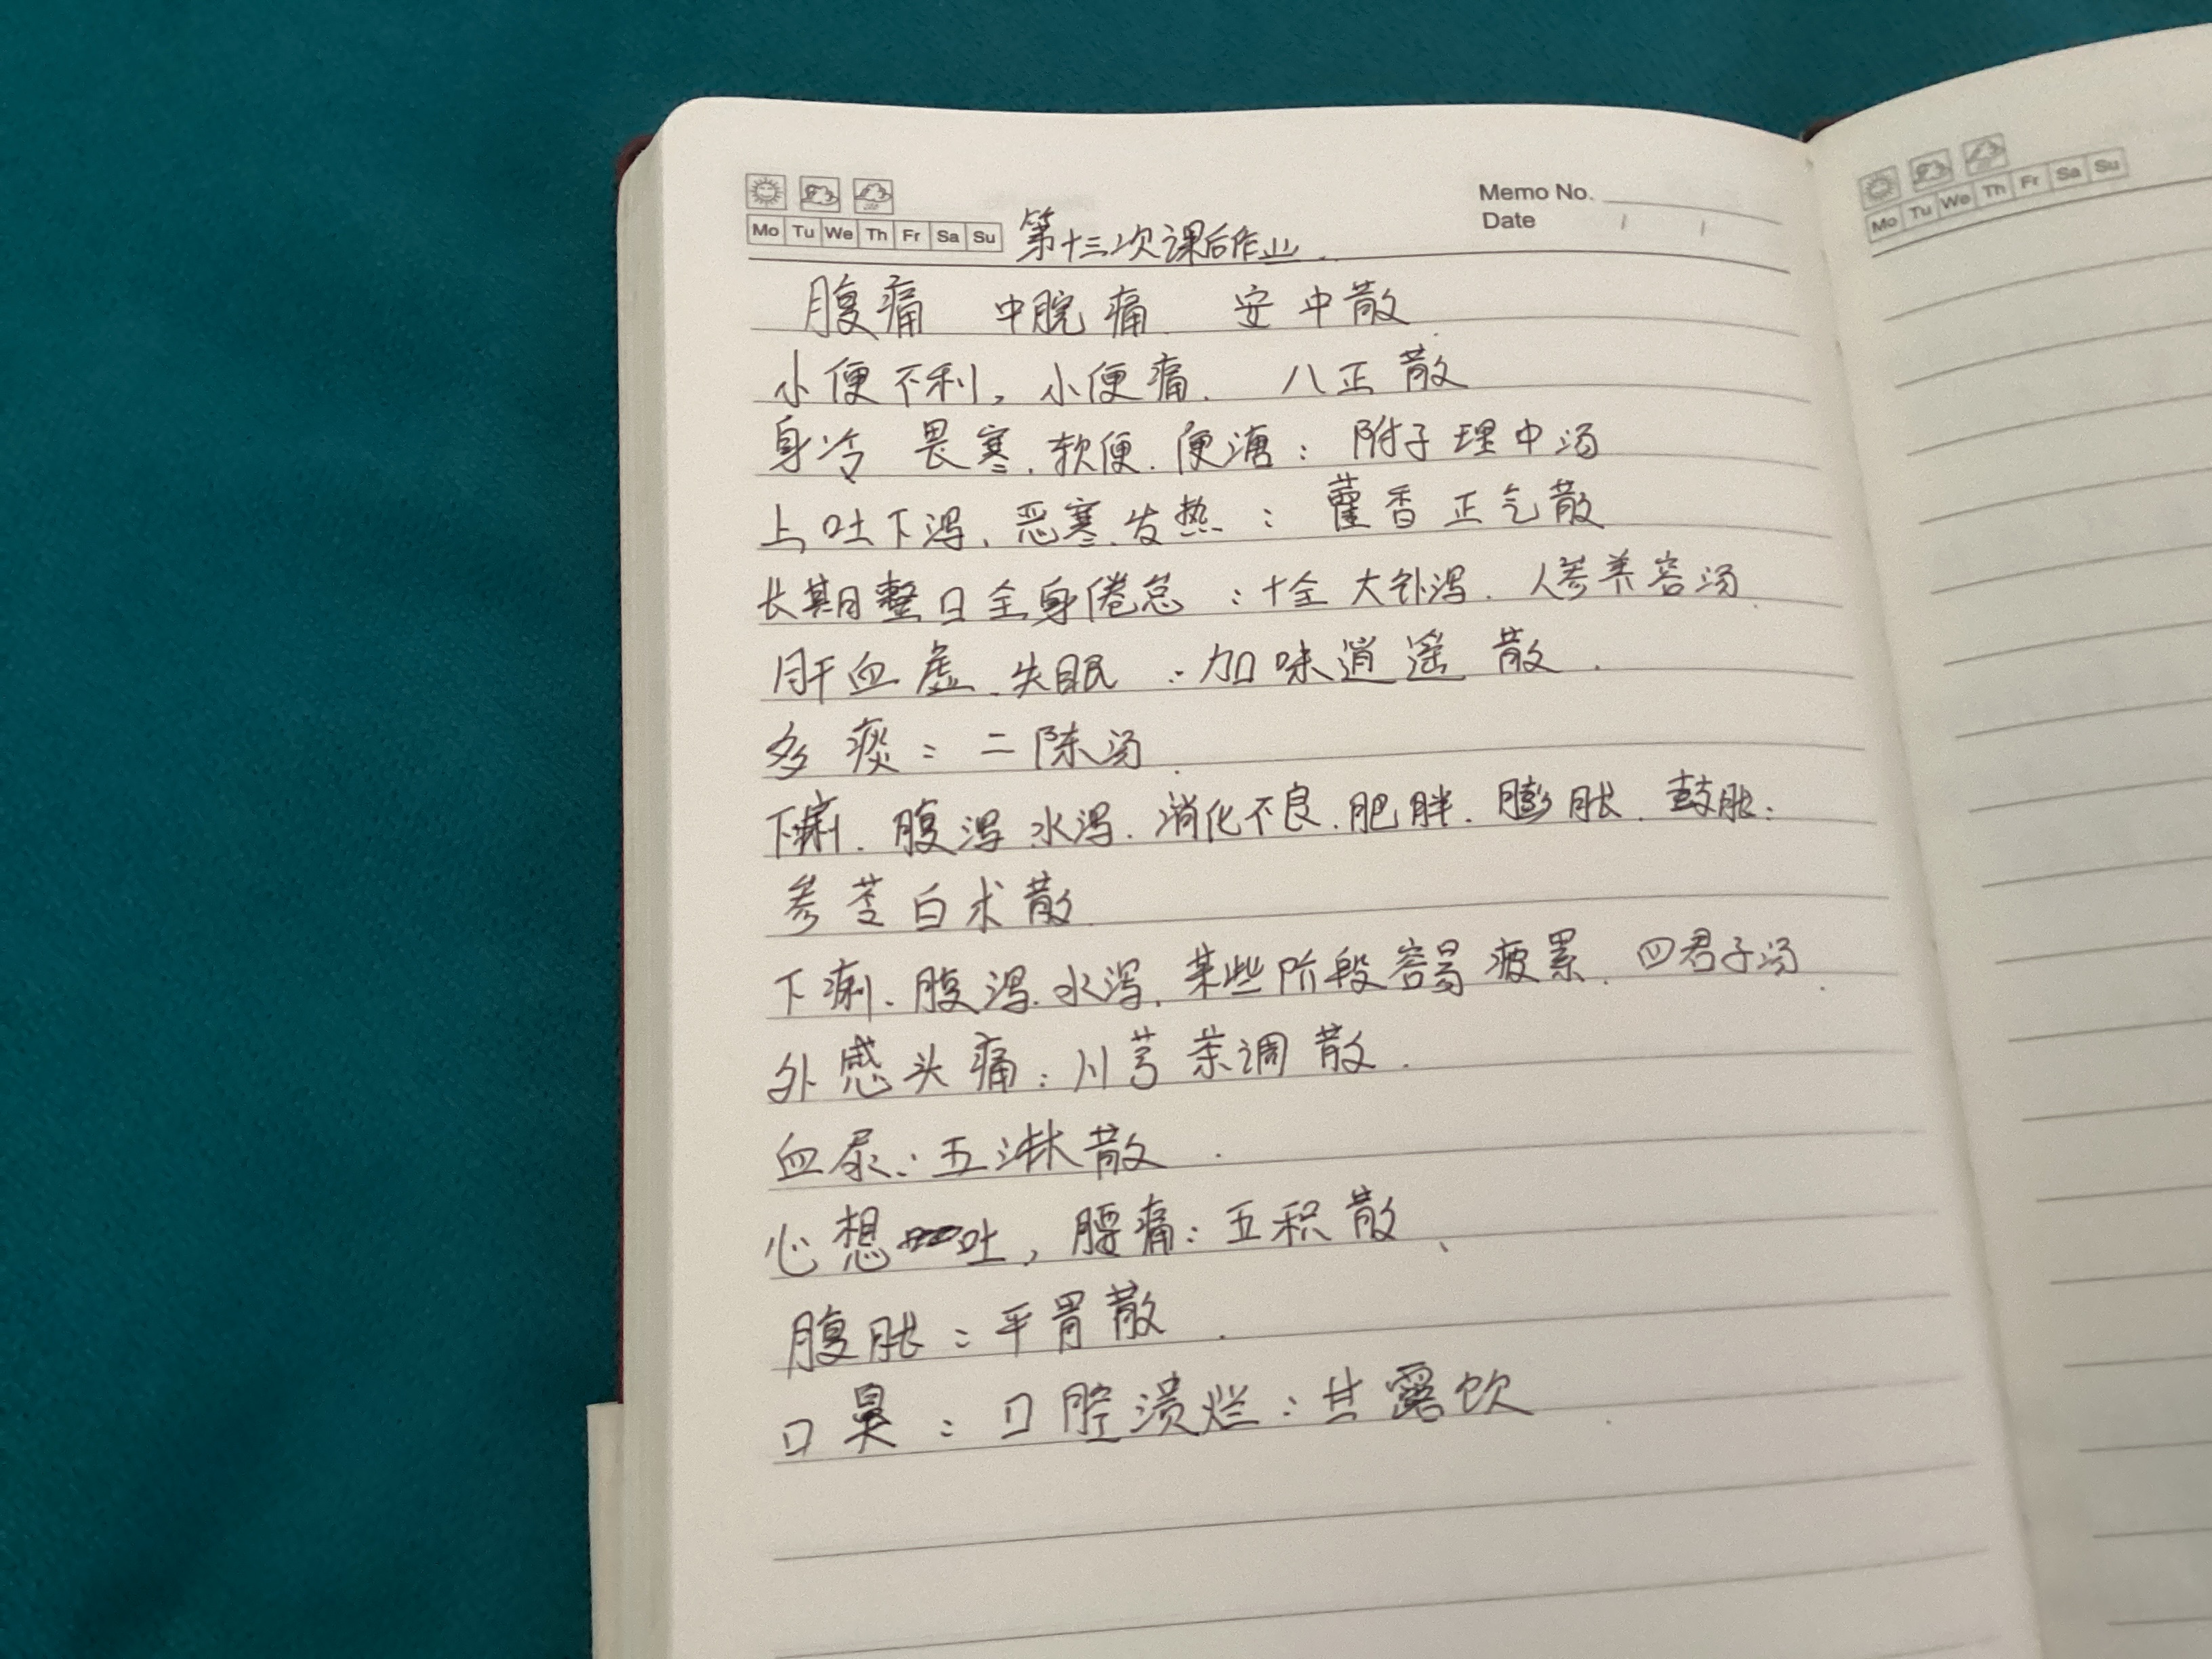 Memo No.
Date / /
Mo Tu We Th Fr Sa Su
第十三次课后作业.
腹痛 中脘痛 安中散
小便不利, 小便痛. 八正散
身冷 畏寒. 软便. 便溏: 附子理中汤
上吐下泻、恶寒、发热: 藿香正气散
长期整日全身倦怠: 十全大补泻. 人参养容汤
肝血虚、失眠: 加味逍遥散.
多痰: 二陈汤.
下痢. 腹泻 水泻. 消化不良. 肥胖. 膨胀. 鼓胀:
参苓白术散
下痢. 腹泻. 水泻. 某些阶段容易疲累. 四君子汤.
外感头痛: 川芎茶调散.
血尿: 五淋散.
心想吐, 腰痛: 五积散、
腹胀: 平胃散.
口臭: 口腔溃烂: 甘露饮
Mo Tu We Th Fr Sa Su